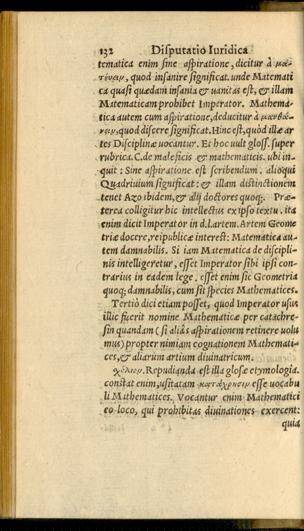 132 Disputatio Iuridica
tematica enim sine aspiratione, dicitur à ματ
quod insanire significat. unde Matemati
ca quasi quædam insania & uanitas est, & illam
Matematicam prohibet Imperator. Mathema-
tica autem cum aspiratione, deducitur à μανθά-
νειν, quod discere significat. Hinc est, quòd illæ ar
tes Disciplinæ uocantur. Et hoc uult gloss. super
rubrica. C. de maleficis & mathematicis. ubi in-
quit: Sine aspiratione est scribendum, alioqui
Quadriuium significat: & illam distinctionem
tenet Azo ibidem, & alij doctores quoq;. Præ-
terea colligitur hic intellectus ex ipso textu, ita
enim dicit Imperator in d.l. artem. Artem Geome
triæ docere, reipublicæ interest: Matematica au-
tem damnabilis. Si iam Matematica de discipli-
nis intelligeretur, esset Imperator sibi ipsi con-
trarius in eadem lege, esset enim sic Geometria
quoq; damnabilis, cum sit species Mathematices.
Tertiò dici etiam posset, quod Imperator usus
illic fuerit nomine Mathematicæ per catachre-
sin quandam (si aliàs aspirationem retinere uolu
mus) propter nimiam cognationem Mathemati-
ces, & aliarum artium diuinatricum.
Repudianda est illa glosæ etymologia.
constat enim, usitatam κατάχρησιν esse uocabu
li Mathematices. Vocantur enim Mathematici
eo loco, qui prohibitas diuinationes exercent:
quia